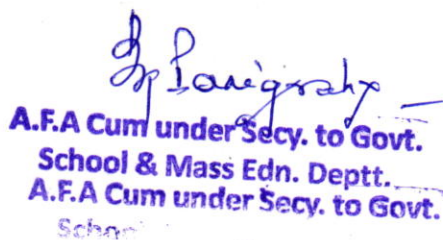 Panigrahy
A.F.A Cum under Secy. to Govt.
School & Mass Edn. Deptt.
A.F.A Cum under Secy. to Govt.
School